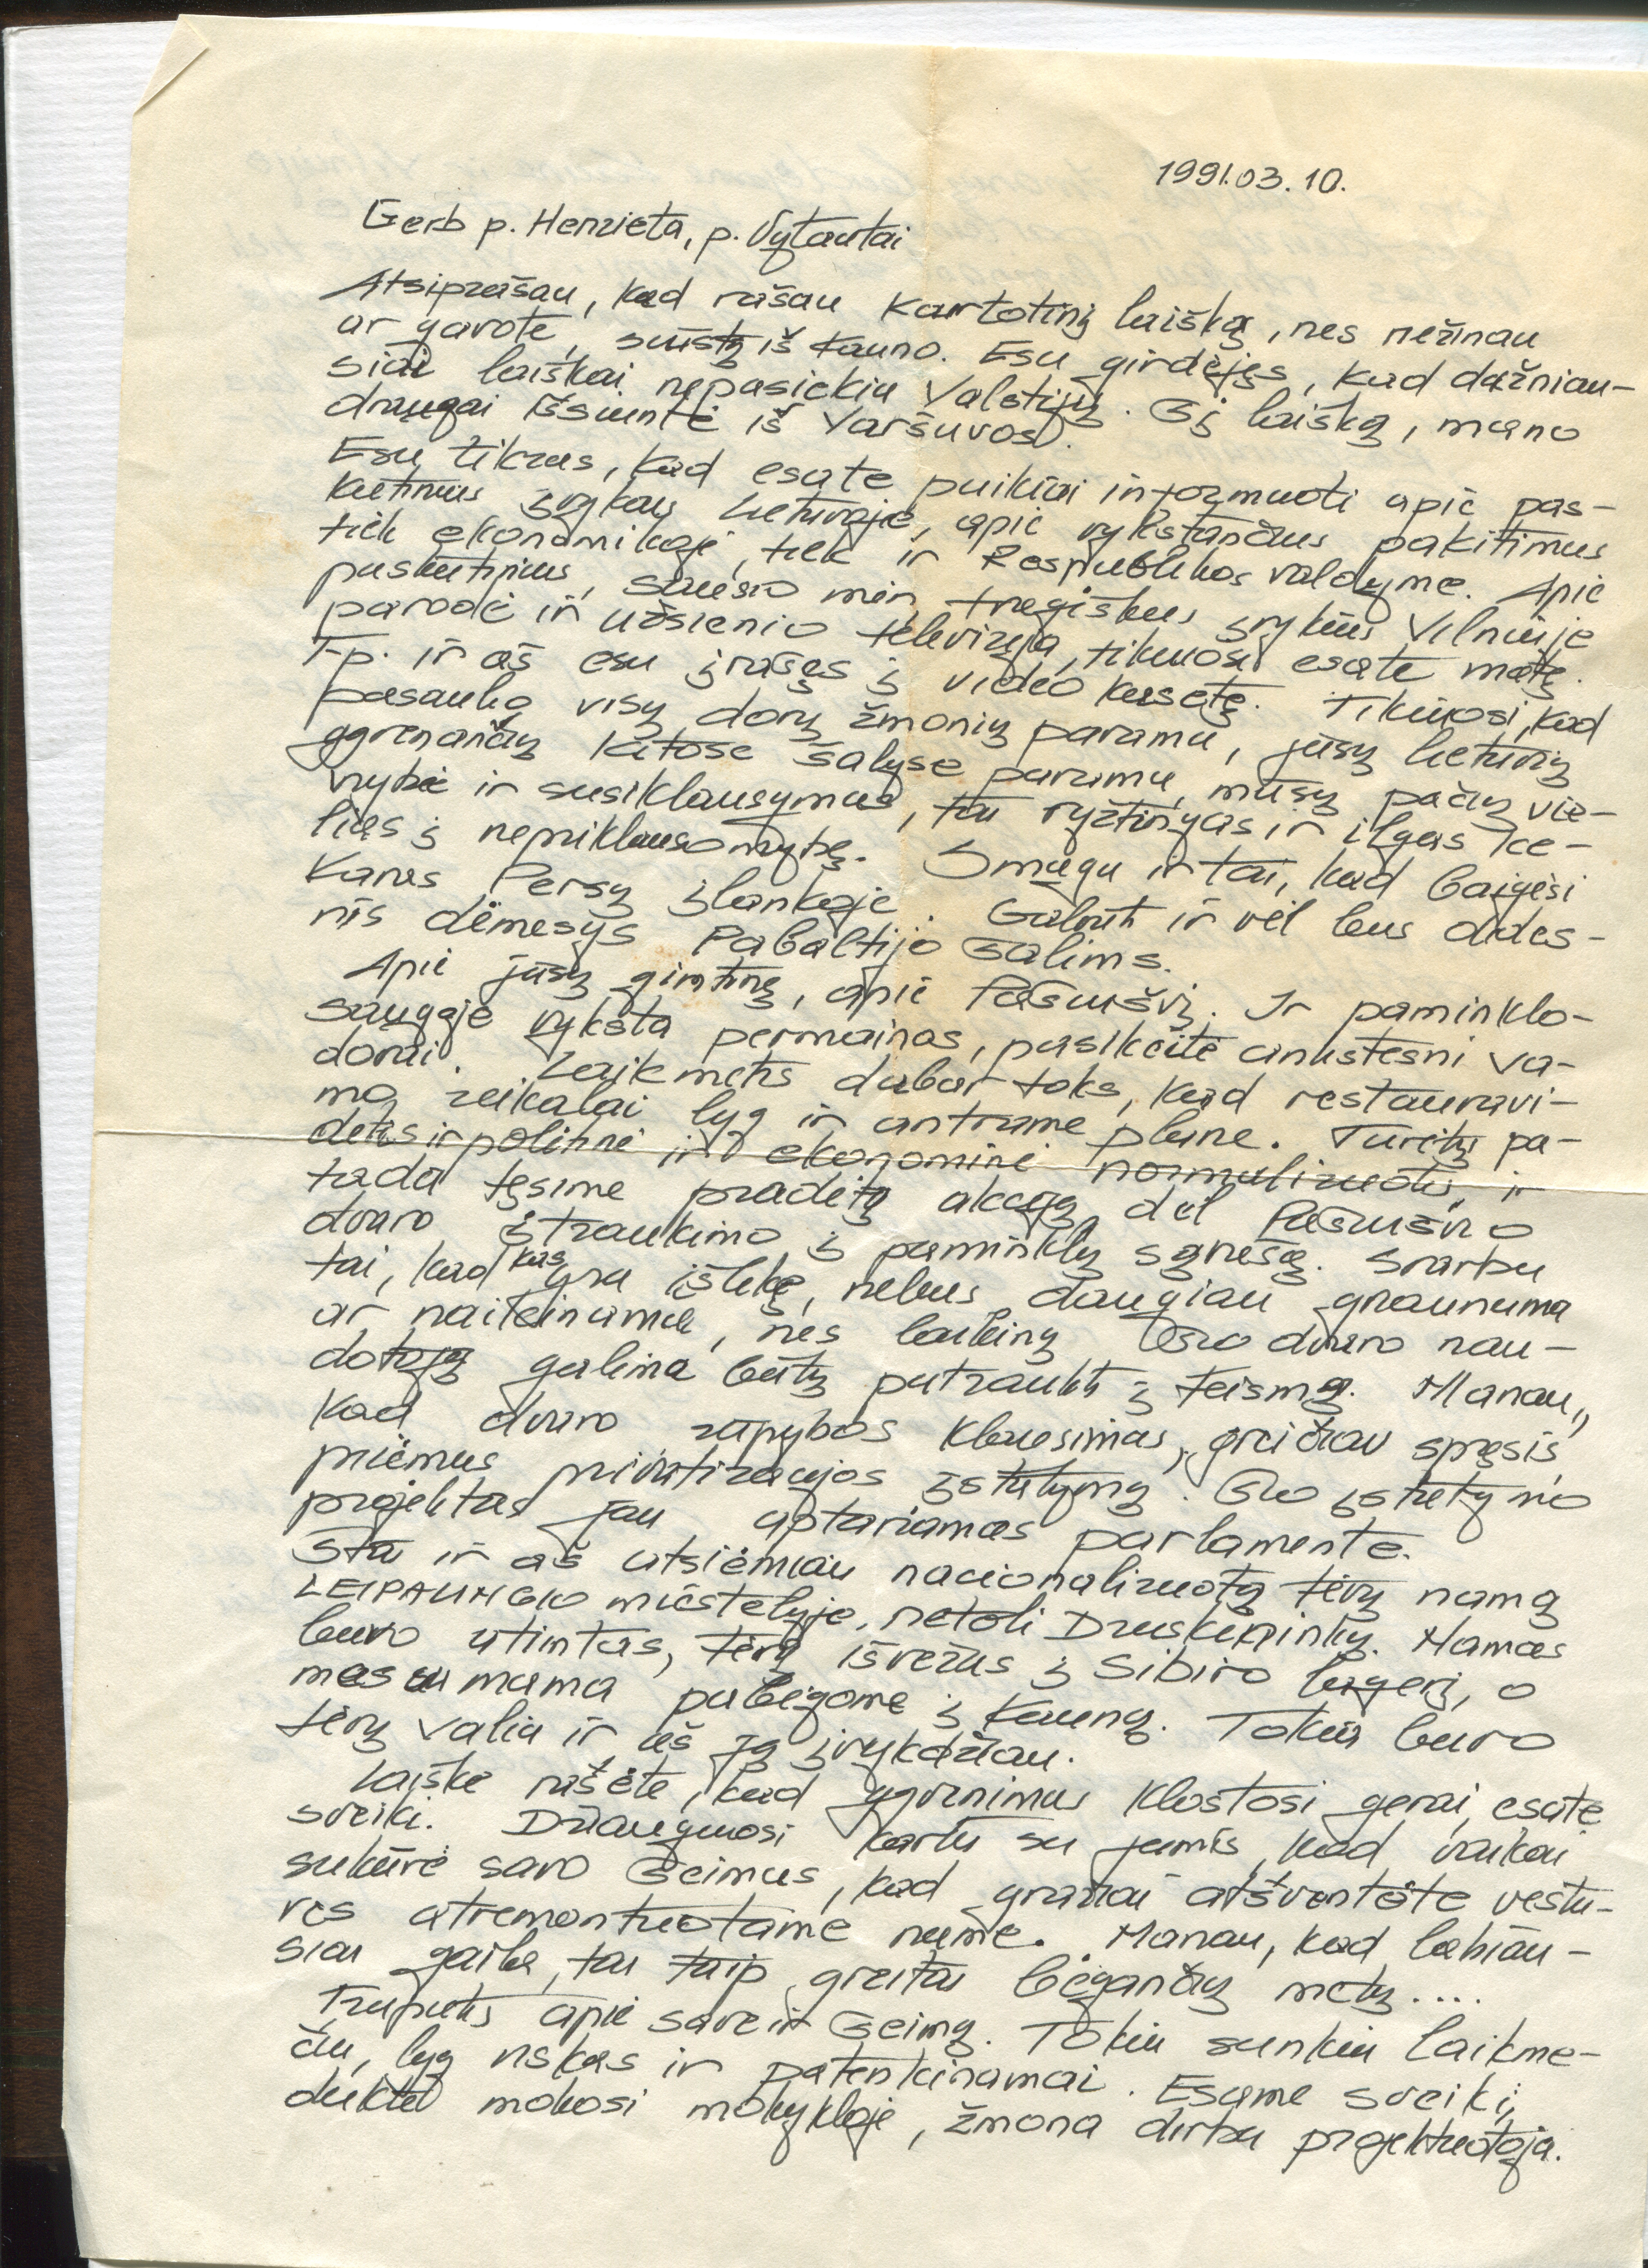 1991.03.10.
Gerb p. Henrieta, p. Vytautai
Atsiprašau, kad rašau kartotinį laišką, nes nežinau
ar gavote, siųstą iš Kauno. Esu girdėjęs, kad dažniau-
siai laiškai nepasiekia Valstijų. Šį laišką, mano
draugai išsiuntė iš Varšuvos.
Esu tikras, kad esate puikiai informuoti apie pas-
kutinius įvykius Lietuvoje, apie vykstančius pakitimus
tiek ekonomikoje, tiek ir Respublikos valdyme. Apie
paskutinius, sausio mėn. tragiškus įvykius Vilniuje
parodė ir užsienio televizija, tikiuosi esate matę.
T.p. ir aš esu įrašęs į video kasetę. Tikiuosi, kad
pasaulio visų dorų žmonių parama, jūsų lietuvių
gyvenančių kitose šalyse parama, mūsų pačių vie-
nybė ir susiklausymas, tai ryžtingas ir ilgas ke-
lias į nepriklausomybę. Smagu ir tai, kad baigėsi
Karas Persų įlankoje. Galbūt ir vėl bus dides-
nis dėmesys Pabaltijo šalims.
Apie jūsų gimtinę, apie Pašušvį. Ir paminklo-
saugoje vyksta permainos, pasikeitė ankstesni va-
dovai. Laikmetis dabar toks, kad restauravi-
mo reikalai lyg ir antrame plane. Turėtų pa-
dėtis ir politinė ir ekonominė normalizuotis, ir
tada tęsime pradėtą akciją dėl Pašušvio
dvaro įtraukimo į paminklų sąrašą. Svarbu
tai, kad kas yra išlikę, nebus daugiau graunama
ar naikinama, nes laikiną šio dvaro nau-
dotoją galima būtų patraukti į teismą. Manau,
kad dvaro rūpybos klausimas, greičiau spręsis,
priėmus privatizacijos įstatymą. Šio įstatymo
projektas jau aptariamas parlamente.
Štai ir aš atsiėmiau nacionalizuotą tėvų namą
LEIPALINGIO miestelyje, netoli Druskininkų. Namas
buvo atimtas, tėvą išvežus į Sibiro lagerį, o
mes su mama pabėgome į Kauną. Tokia buvo
tėvų valia ir aš ją įvykdžiau.
Laiške rašėte, kad gyvenimas klostosi gerai, esate
sveiki. Džiaugiuosi kartu su jumis, kad vaikai
sukūrė savo šeimas, kad gražiai atšventėte vestu-
ves atremontuotame name. Manau, kad labiau-
siai gaila, tai taip greitai bėgančių metų....
Truputis apie save ir šeimą. Tokiu sunkiu laikme-
čiu, lyg viskas ir patenkinamai. Esame sveiki,
duktė mokosi mokykloje, žmona dirba projektuotoja.